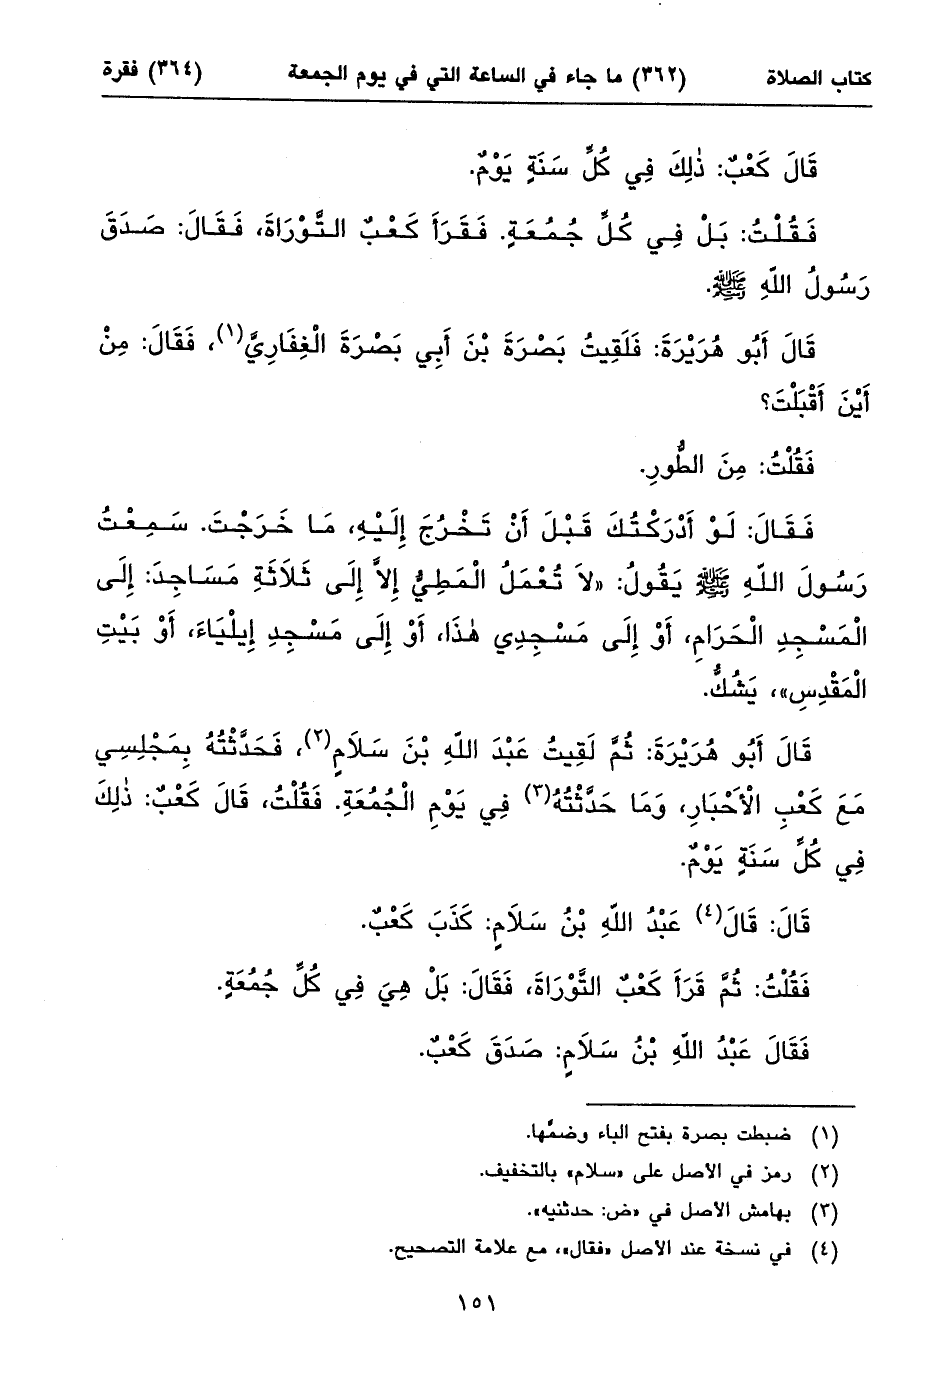 كتاب الصلاة (٣٦٢) ما جاء في الساعة التي في يوم الجمعة (٣٦٤) فقرة
قَالَ كَعْبٌ: ذٰلِكَ فِي كُلِّ سَنَةٍ يَوْمٌ.
فَقُلْتُ: بَلْ فِي كُلِّ جُمُعَةٍ. فَقَرَأَ كَعْبٌ التَّوْرَاةَ، فَقَالَ: صَدَقَ
رَسُولُ اللّهِ ﷺ.
قَالَ أَبُو هُرَيْرَةَ: فَلَقِيتُ بَصْرَةَ بْنَ أَبِي بَصْرَةَ الْغِفَارِيَّ(١)، فَقَالَ: مِنْ
أَيْنَ أَقْبَلْتَ؟
فَقُلْتُ: مِنَ الطُّورِ.
فَقَالَ: لَوْ أَدْرَكْتُكَ قَبْلَ أَنْ تَخْرُجَ إِلَيْهِ، مَا خَرَجْتَ. سَمِعْتُ
رَسُولَ اللّهِ ﷺ يَقُولُ: «لاَ تُعْمَلُ الْمَطِيُّ إِلاَّ إِلَى ثَلَاثَةِ مَسَاجِدَ: إِلَى
الْمَسْجِدِ الْحَرَامِ، أَوْ إِلَى مَسْجِدِي هٰذَا، أَوْ إِلَى مَسْجِدِ إِيلْيَاءَ، أَوْ بَيْتِ
الْمَقْدِسِ»، يَشُكُّ.
قَالَ أَبُو هُرَيْرَةَ: ثُمَّ لَقِيتُ عَبْدَ اللّهِ بْنَ سَلَامٍ(٢)، فَحَدَّثْتُهُ بِمَجْلِسِي
مَعَ كَعْبِ الْأَحْبَارِ، وَمَا حَدَّثْتُهُ(٣) فِي يَوْمِ الْجُمُعَةِ. فَقُلْتُ، قَالَ كَعْبٌ: ذٰلِكَ
فِي كُلِّ سَنَةٍ يَوْمٌ.
قَالَ: قَالَ(٤) عَبْدُ اللّهِ بْنُ سَلَامٍ: كَذَبَ كَعْبٌ.
فَقُلْتُ: ثُمَّ قَرَأَ كَعْبٌ التَّوْرَاةَ، فَقَالَ: بَلْ هِيَ فِي كُلِّ جُمُعَةٍ.
فَقَالَ عَبْدُ اللّهِ بْنُ سَلَامٍ: صَدَقَ كَعْبٌ.
(١) ضبطت بصرة بفتح الباء وضمّها.
(٢) رمز في الأصل على «سلام» بالتخفيف.
(٣) بهامش الأصل في «ض: حدثنيه».
(٤) في نسخة عند الأصل «فقال»، مع علامة التصحيح.
١٥١